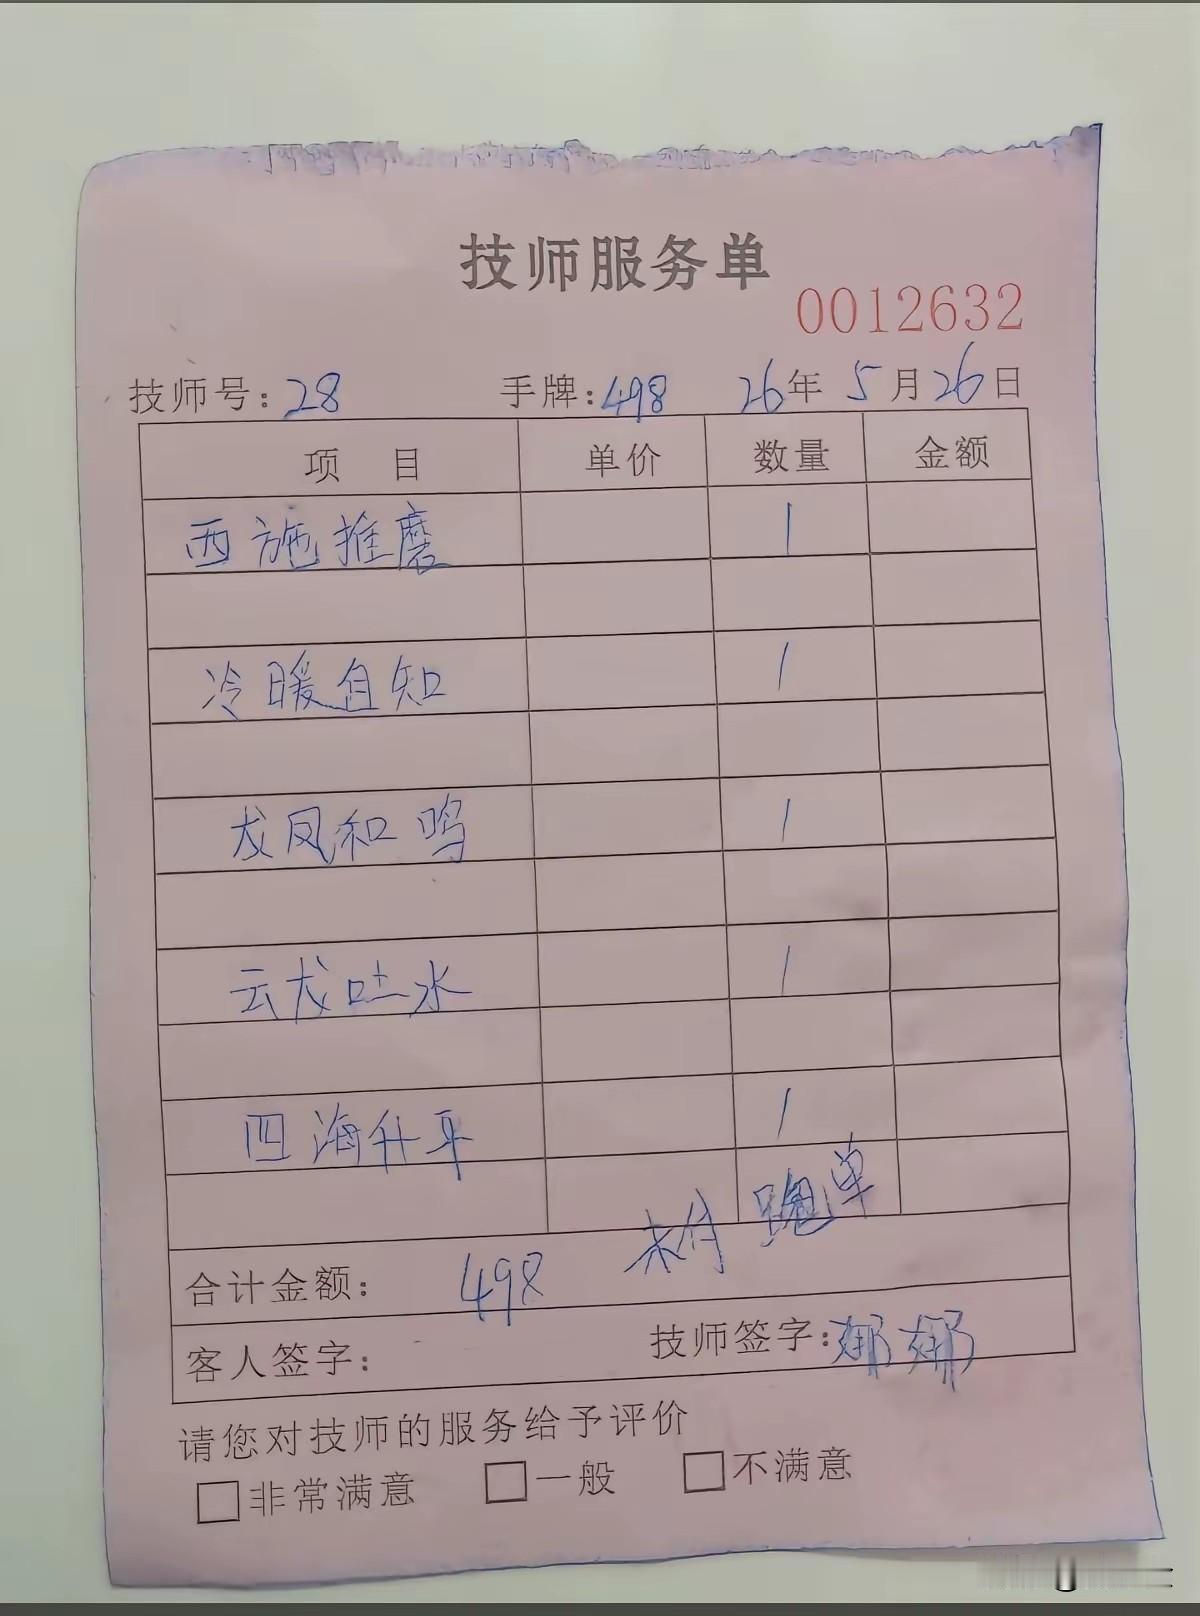 技师服务单
0012632
技师号：28 手牌：498 26年5月26日
项目 单价 数量 金额
西施推磨 1
冷暖自知 1
龙凤和鸣 1
云龙吐水 1
四海升平 1
未付 跑单
合计金额： 498
客人签字： 技师签字：娜娜
请您对技师的服务给予评价
非常满意 一般 不满意